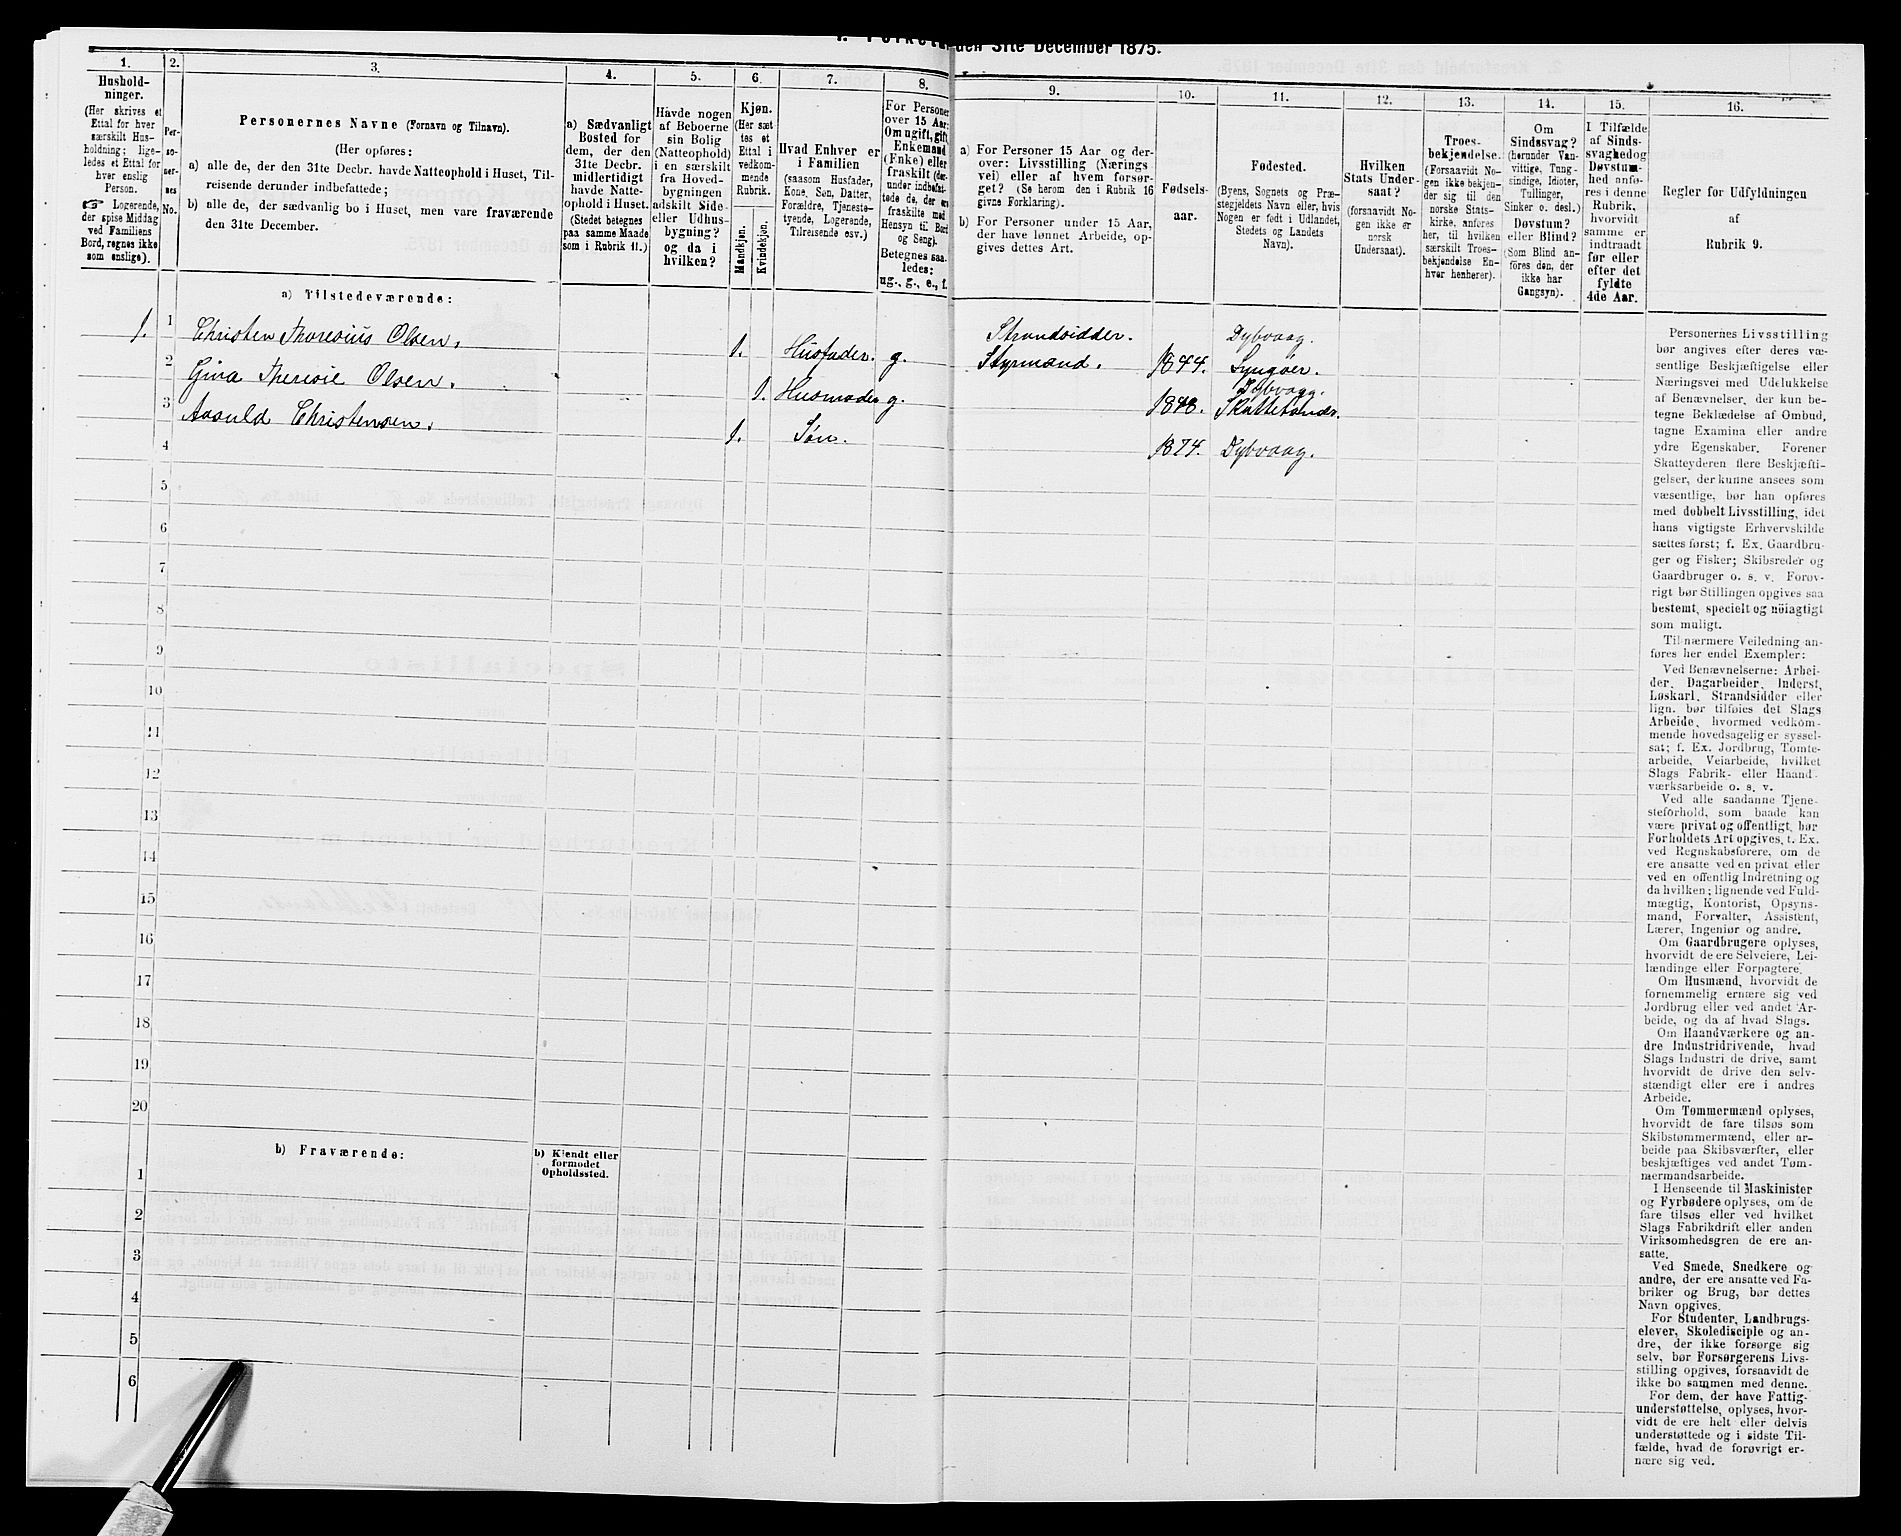 den 31te December 1875.
1.
Hushold-
ninger.
(Her skrives et
Ettal for hver
særskilt Hus-
holdning; lige-
ledes et Ettal for
hver enslig
Person.
☞ Logerende,
der spise Middag
ved Familiens
Bord, regnes ikke
som enslige).
2.
Per-
so-
ner-
nes
No.
3.
Personernes Navne (Fornavn og Tilnavn).
(Her opføres:
a) alle de, der den 31te Decbr. havde Natteophold i Huset, Til-
reisende derunder indbefattede;
b) alle de, der sædvanlig bo i Huset, men vare fraværende
den 31te December.
4.
a) Sædvanligt
Bosted for
dem, der den
31te Decbr.
midlertidigt
havde Natte-
ophold i Huset.
(Stedet betegnes
paa samme Maade
som i Rubrik 11.)
5.
Havde nogen
af Beboerne
sin Bolig
(Natteophold)
i en særskilt
fra Hoved-
bygningen
adskilt Side-
eller Udhus-
bygning?
og da i
hvilken?
6.
Kjøn.
(Her sæt-
tes et
Ettal i
vedkom-
mende
Rubrik.
Mandkjøn.
Kvindekjøn.
7.
Hvad Enhver er
i Familien
(saasom Husfader,
Kone, Søn, Datter,
Forældre, Tjeneste-
tyende, Logerende,
Tilreisende osv.)
8.
For Personer
over 15 Aar:
Om ugift, gift,
Enkemand
(Enke) eller
fraskilt (der-
under indbefat-
tede de, der ere
fraskilte med
Hensyn til Bord
og Seng).
Betegnes saa-
ledes:
ug., g., e., f.
9.
a) For Personer 15 Aar og der-
over: Livsstilling (Nærings
vei) eller af hvem forsør-
get? (Se herom den i Rubrik 16
givne Forklaring).
b) For Personer under 15 Aar,
der have lønnet Arbeide, op-
gives dettes Art.
10.
Fødsels-
aar.
11.
Fødested.
(Byens, Sognets og Præ-
stegjeldets Navn eller, hvis
Nogen er født i Udlandet,
Stedets og Landets
Navn).
12.
Hvilken
Stats Under-
saat?
(forsaavidt No-
gen ikke er
norsk
Undersaat).
13.
Troes-
bekjendelse.
(Forsaavidt No-
gen ikke bekjen-
der sig til den
norske Stats-
kirke, anføres
her, til hvilken
særskilt Troes-
bekjendelse En-
hver henhører).
14.
Om
Sindssvag?
(herunder Van-
vittige, Tung-
sindige, Idioter,
Tullinger,
Sinker o. desl.)
Døvstum?
eller Blind?
(Som Blind an-
føres den, der
ikke har
Gangsyn).
15.
I Tilfælde
af Sinds-
svaghed og
Døvstum-
hed anfø-
res i denne
Rubrik,
hvorvidt
samme er
indtraadt
før eller
efter det
fyldte
4de Aar.
16.
Regler for Udfyldningen
af
Rubrik 9.
a) Tilstedeværende:
1. 1 Christen Thoresius Olsen. 1. Husfader. g. Strandsidder. Styrmand. 1844. Dybvaag. Lyngøer.
2 Gina Theresie Olsen. 1. Husmoder g. 1848. Dybvaag. Skattebonds.
3 Aasuld Christensen. 1. Søn. 1874. Dybvaag.
4
5
6
7
8
9
10
11
12
13
14
15
16
17
18
19
20
b) Fraværende:
b) Kjendt eller
formodet
Opholdssted.
1
2
3
4
5
6
Personernes Livsstilling
bør angives efter deres væ-
sentlige Beskjæftigelse eller
Næringsvei med Udelukkelse
af Benævnelser, der kun be-
tegne Beklædelse af Ombud,
tagne Examina eller andre
ydre Egenskaber. Forener
Skatteyderen flere Beskjæfti-
gelser, der kunne ansees som
væsentlige, bør han opføres
med dobbelt Livsstilling, idet
hans vigtigste Erhvervskilde
sættes først; f. Ex. Gaardbru-
ger og Fisker; Skibsreder og
Gaardbruger o. s. v. Forøv-
rigt bør Stillingen opgives saa
bestemt, specielt og nöiagtigt
som muligt.
Til nærmere Veiledning an-
føres her endel Exempler:
Ved Benævnelserne: Arbei-
der, Dagarbeider, Inderst,
Løskarl, Strandsidder eller
lign. bør tilføies det Slags
Arbeide, hvormed vedkom-
mende hovedsagelig er syssel-
sat; f. Ex. Jordbrug, Tomte-
arbeide, Veiarbeide, hvilket
Slags Fabrik- eller Haand-
værksarbeide o. s. v.
Ved alle saadanne Tjene-
steforhold, som baade kan
være privat og offentligt, bør
Forholdets Art opgives, t. Ex.
ved Regnskabsførere, om de
ere ansatte ved en privat eller
ved en offentlig Indretning og
da hvilken; lignende ved Fuld-
mægtig, Kontorist, Opsyns-
mand, Forvalter, Assistent,
Lærer, Ingeniør og andre.
Om Gaardbrugere oplyses,
hvorvidt de ere Selveiere, Lei-
lændinge eller Forpagtere.
Om Husmænd, hvorvidt de
fornemmelig ernære sig ved
Jordbrug eller ved andet Ar-
beide, og da af hvad Slags.
Om Haandværkere og an-
dre Industridrivende, hvad
Slags Industri de drive, samt
hvorvidt de drive den selv-
stændigt eller ere i andres
Arbeide.
Om Tømmermænd oplyses,
hvorvidt de fare tilsøs som
Skibstømmermænd, eller ar-
beide paa Skibsværfter, eller
beskjæftiges ved andet Tøm-
mermandsarbeide.
I Henseende til Maskinister
og Fyrbødere oplyses, om de
fare tilsøs eller ved hvilket
Slags Fabrikdrift eller anden
Virksomhedsgren de ere an-
satte.
Ved Smede, Snedkere og
andre, der ere ansatte ved Fa-
briker og Brug, bør dettes
Navn opgives.
For Studenter, Landbrugs-
elever, Skoledisciple og an-
dre, der ikke forsørge sig
selv, bør Forsørgerens Livs-
stilling opgives, forsaavidt de
ikke bo sammen med denne.
For dem, der have Fattig-
understøttelse, oplyses, hvor-
vidt de ere helt eller delvis
understøttede og i sidste Til-
fælde, hvad de forøvrigt er-
nære sig ved.